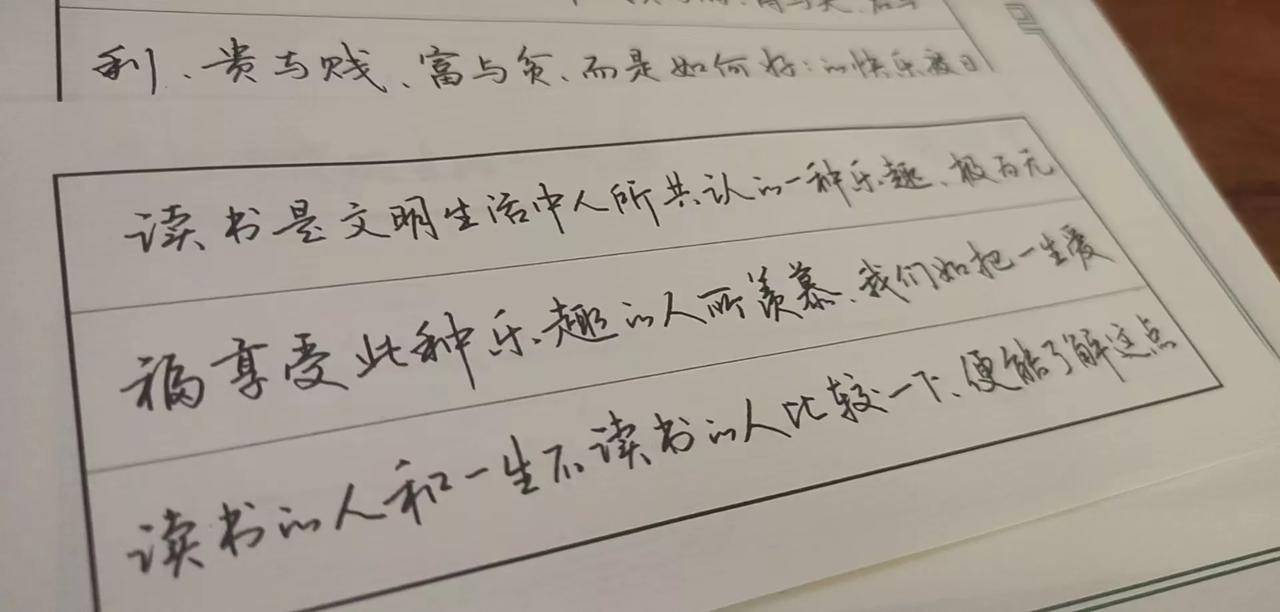 利、贵与贱、富与贫、而是如何好：的快乐被日
读书是文明生活中人所共认的一种乐趣、极为无
福享受此种乐趣的人所羡慕、我们如把一生爱
读书的人和一生不读书的人比较一下、便能了解这点